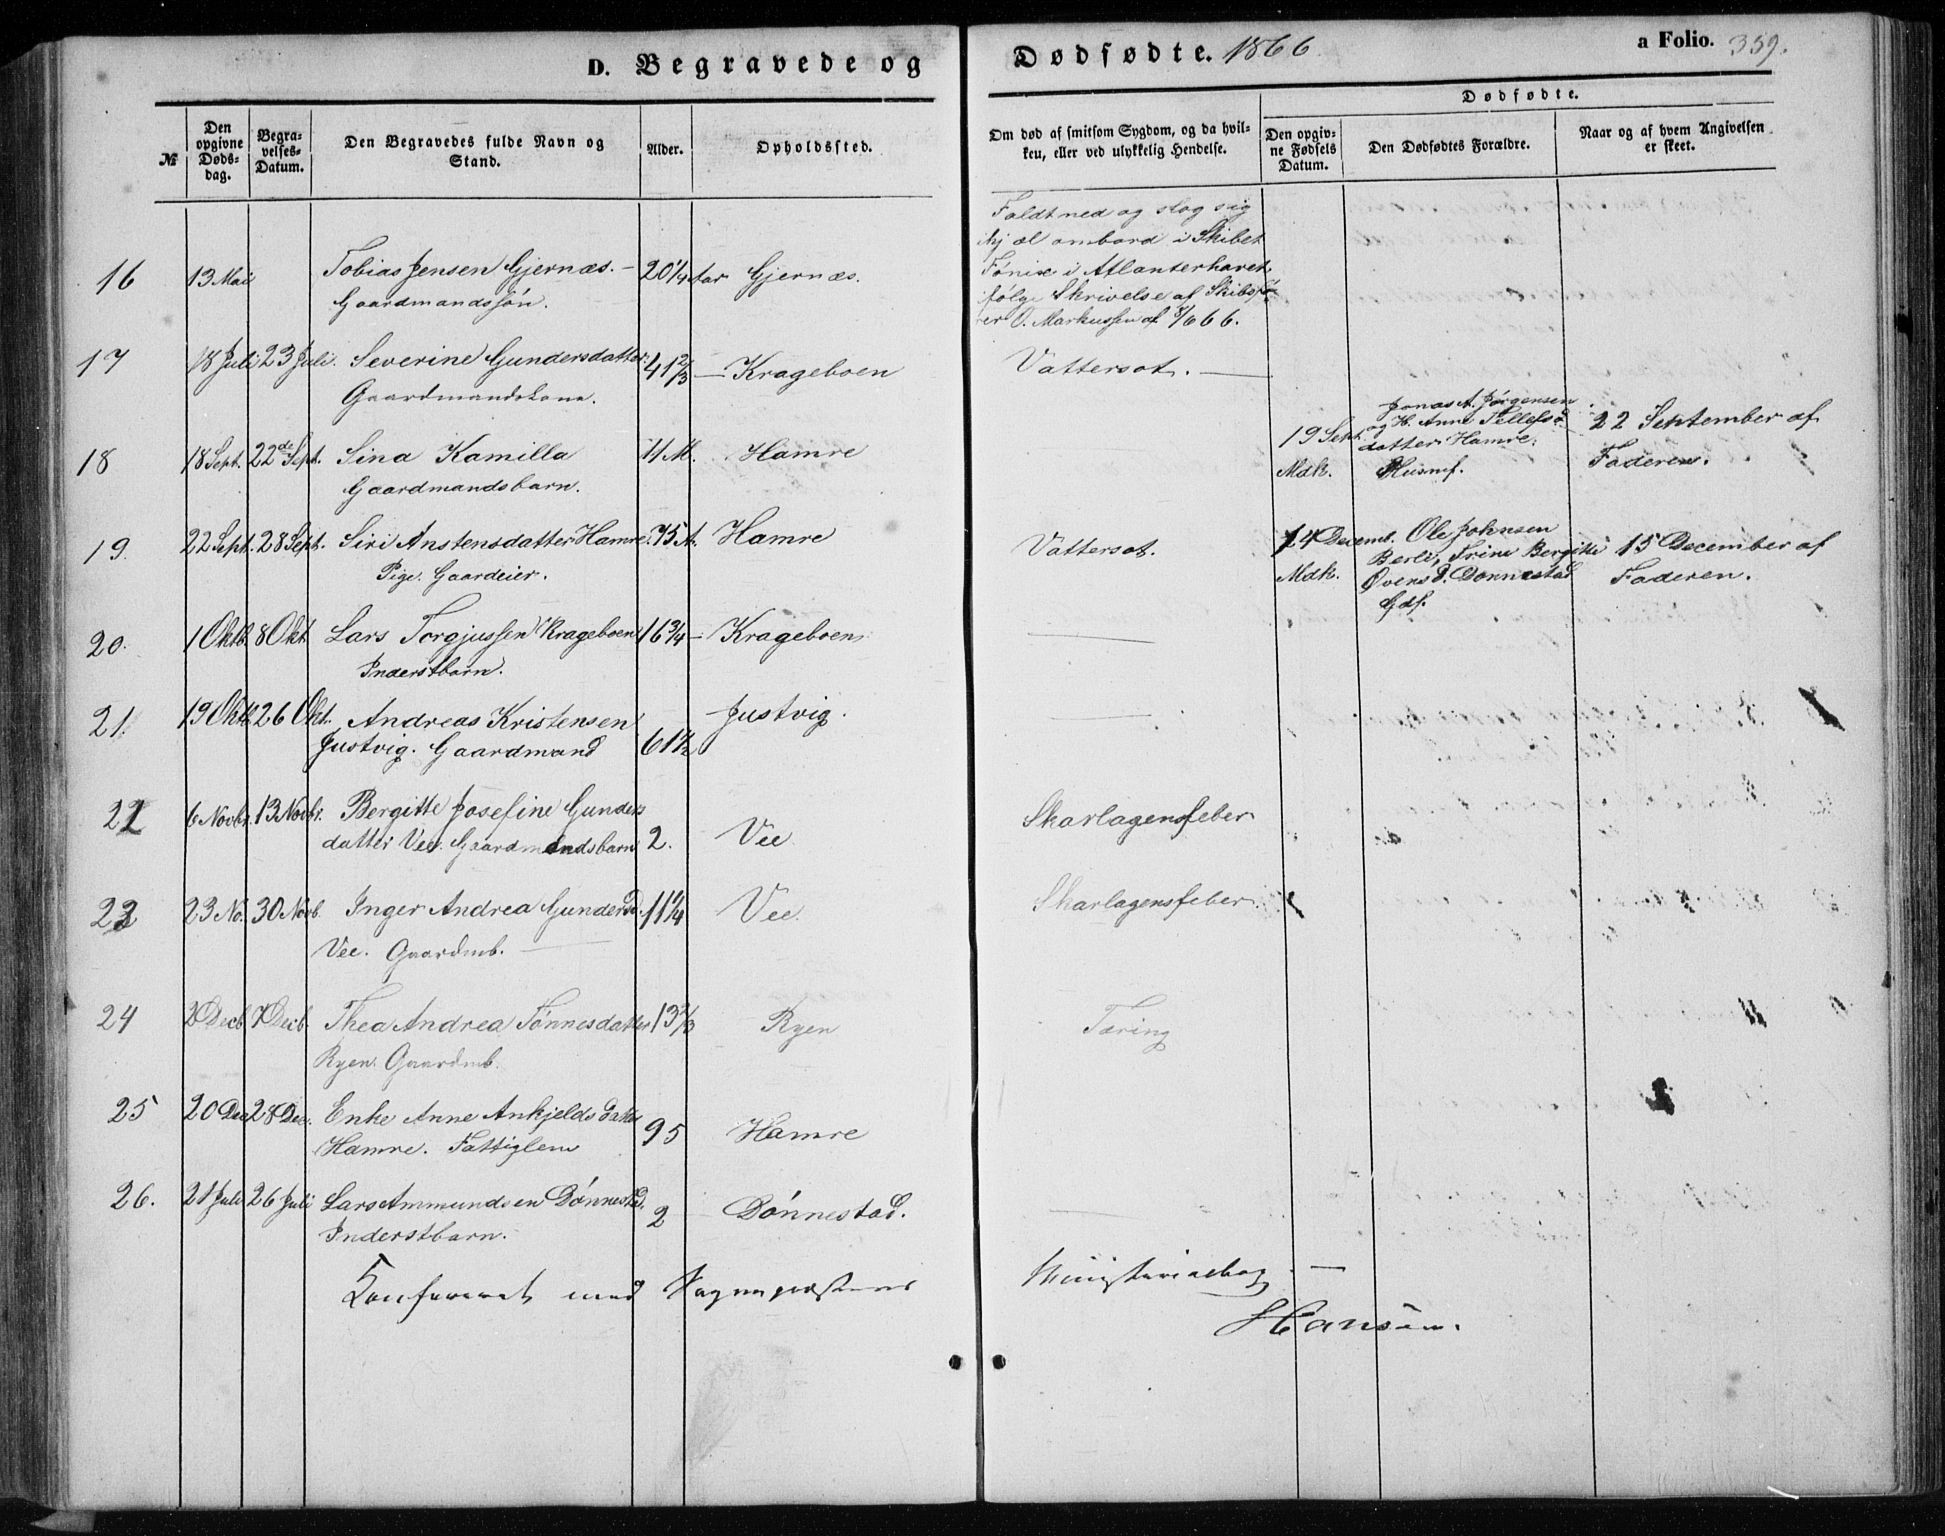 D. Begravede og
Dødfødte. 1866
a Folio. 359.
№
Den opgivne Døds-dag.
Begra-velses-Datum.
Den Begravedes fulde Navn og Stand.
Alder.
Opholdssted.
Om død af smitsom Sygdom, og da hvil-ken, eller ved ulykkelig Hendelse.
Dødfødte.
Den opgiv-ne Fødsels Datum.
Den Dødfødtes Forældre.
Naar og af hvem Angivelsen er skeet.
16 13 Mai Tobias Jensen Gjernæs. – 20 1/4 Aar Gjernæs.
Gaardmandssøn.
Faldt ned og slog sig
ihjæl ombord i Skibet
Fønix i Atlanterhavet,
følge Skrivelse af Skibsfø-
rer O. Markussen af 8/6 66.
17 18 Juli 23 Juli. Severine Gundersdatter 41 2/3 — Krageboen Vattersot. —
Gaardmandskone.
18 18 Sept. 22de Sept. Sina Kamilla 11 M. Hamre
Gaardmandsbarn.
19 Sept.
Mdk.
Jonas A. Jørgensen
og H. Anne Tellefs-
datter Hamre.
Husmf.
22 September af
Faderen.
19. 22 Sept. 28 Sept. Siri Anstensdatter Hamre. 75 A. Hamre Vattersot.
Pige. Gaardeier.
14 Decemb.
Mdk.
Ole Johnsen
Berli, Trine Bergitte
Øvensd. Dønnestad
Gdf.
15 December af
Faderen.
20. 1 Oktb. 8 Okt Lars Torgjussen Krageboen 16 3/4 — Krageboen —
Inderstbarn.
21. 19 Oktb. 26 Okt. Andreas Kristensen Justvig. —
Justvig. Gaardmand 61 1/2
22 6 Novbr. 13 Novbr. Bergitte Josefine Gunders
datter Vee. Gaardmandsbarn 2. Vee Skarlagensfeber
23 23 No. 30 Novb. Inger Andrea Gundersd. 11 1/4 Vee. Skarlagensfeber
Vee. Gaardmb. —
24 2 Decb 7 Decb. Thea Andrea Tønnesdatter 13 2/3 Ryen Tæring
Ryen. Gaardmb.
25 20 Dec 28 Dec. Enke Anne Ankjeldsdatter
Hamre. Fattiglem 95 Hamre
26. 21 Juli 26 Juli Lars Ammundsen Dønnestad. 2 Dønnestad.
Inderstbarn.
Konfereret med Sognepræstens Ministerialbog. —
Hansen.